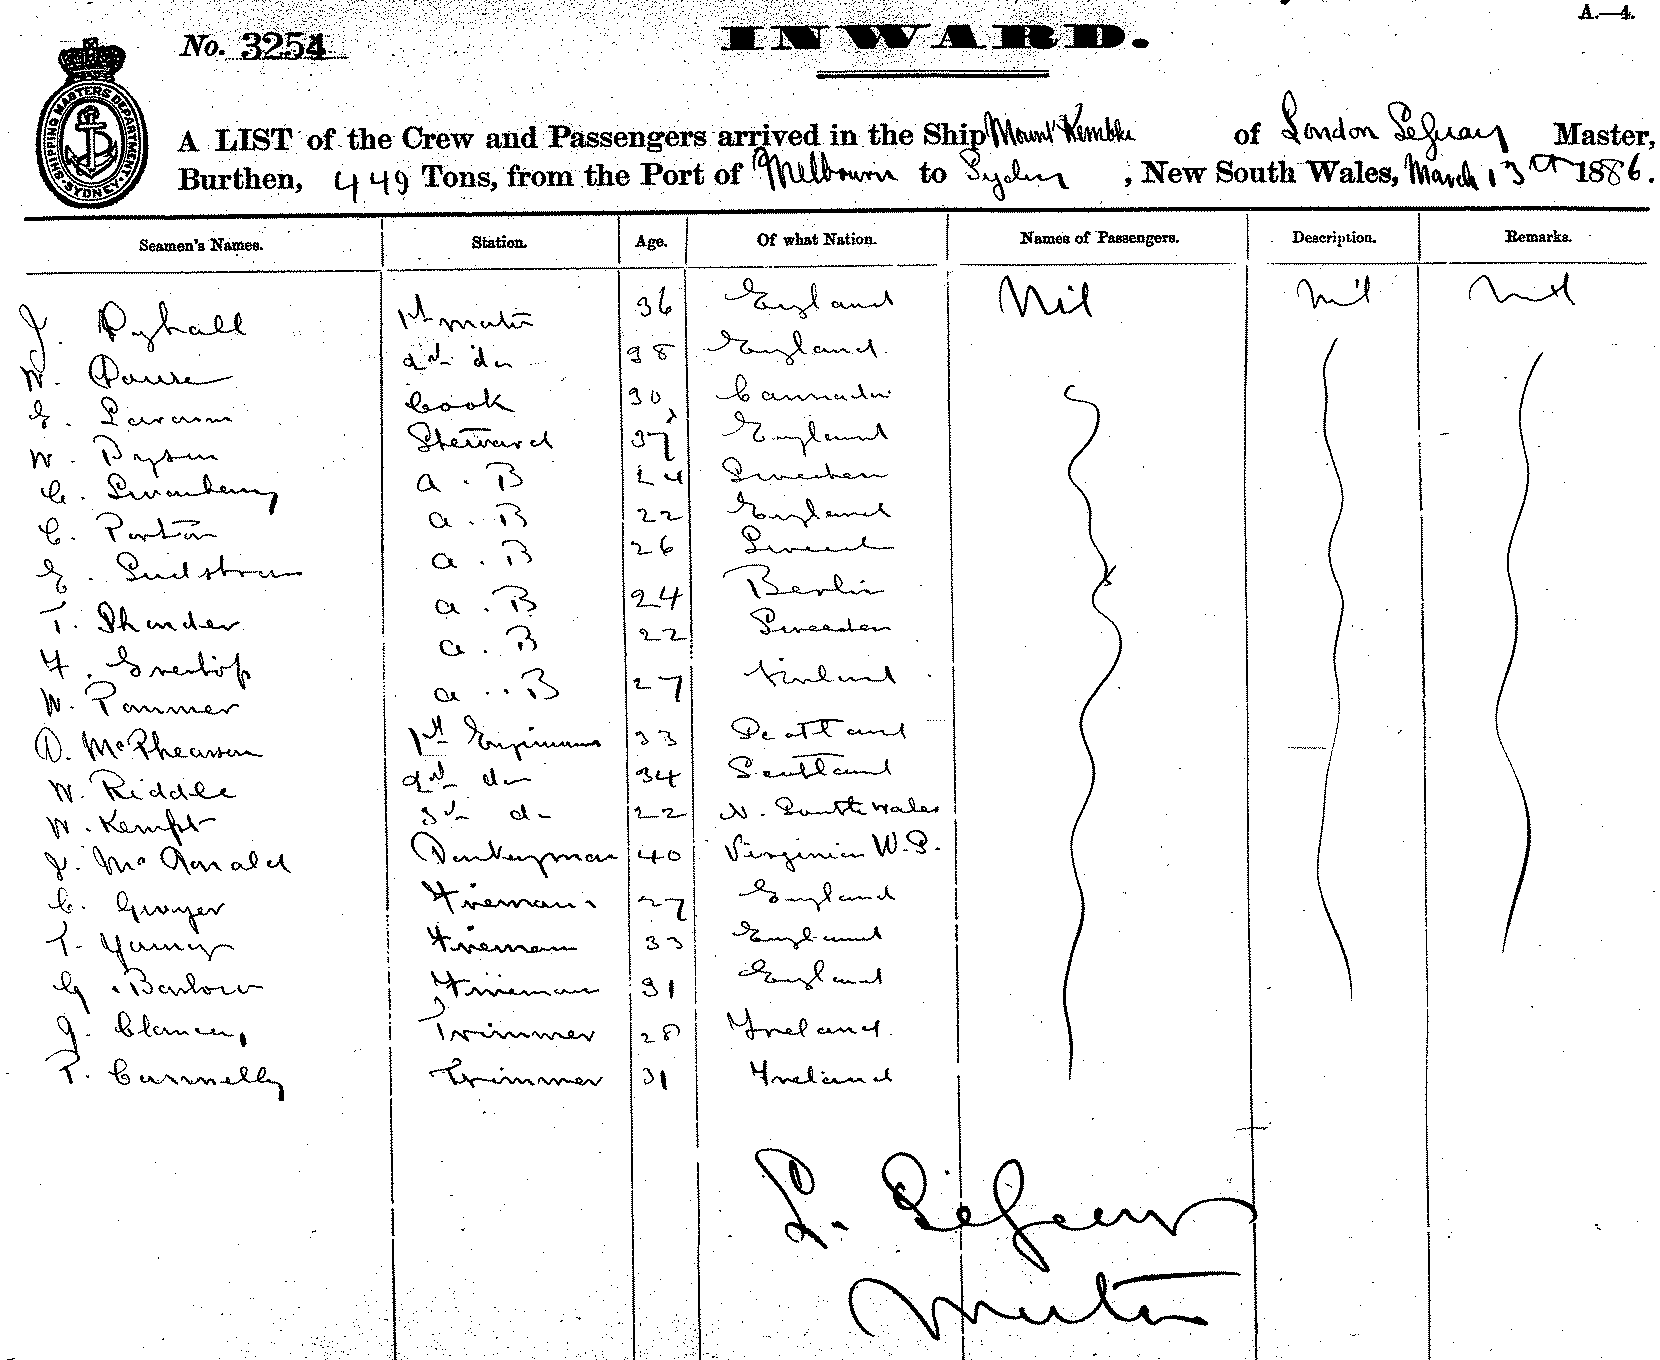 A.—4.
No. 3254
INWARD.
SHIPPING MASTERS DEPARTMENT SYDNEY
A LIST of the Crew and Passengers arrived in the Ship Mount Kembla of London Master,
Burthen, 449 Tons, from the Port of Melbourn to Sydney, New South Wales, March 13th 1886.
Seamen's Names. Station. Age. Of what Nation. Names of Passengers. Description. Remarks.
J. 1st mate 36 England Nil Nil Nil
W. 2nd do 38 England
E. Cook 30 Cannada
W. Dyson Steward 37 England
C. Swanberg A. B 24 Sweeden
C. Porton A. B 22 England
E. A. B 26
T. A. B 24 Berlin
F. A. B 22 Sweeden
W. Pammer A. B 27 Finland
D. McPhearson 1st 33 Scotland
W. Riddle 2nd do 34 Scotland
W. Kempt 3rd do 22 N. South Wales
J. McDonald Donkeyman 40 Virginia W. S.
C. Gwyer Fireman 27 England
T. Young Fireman 33 England
G. Barlow Fireman 31 England
J. Clancey Trimmer 28 Ireland
P. Connelly Trimmer 31 Ireland
L.
Master